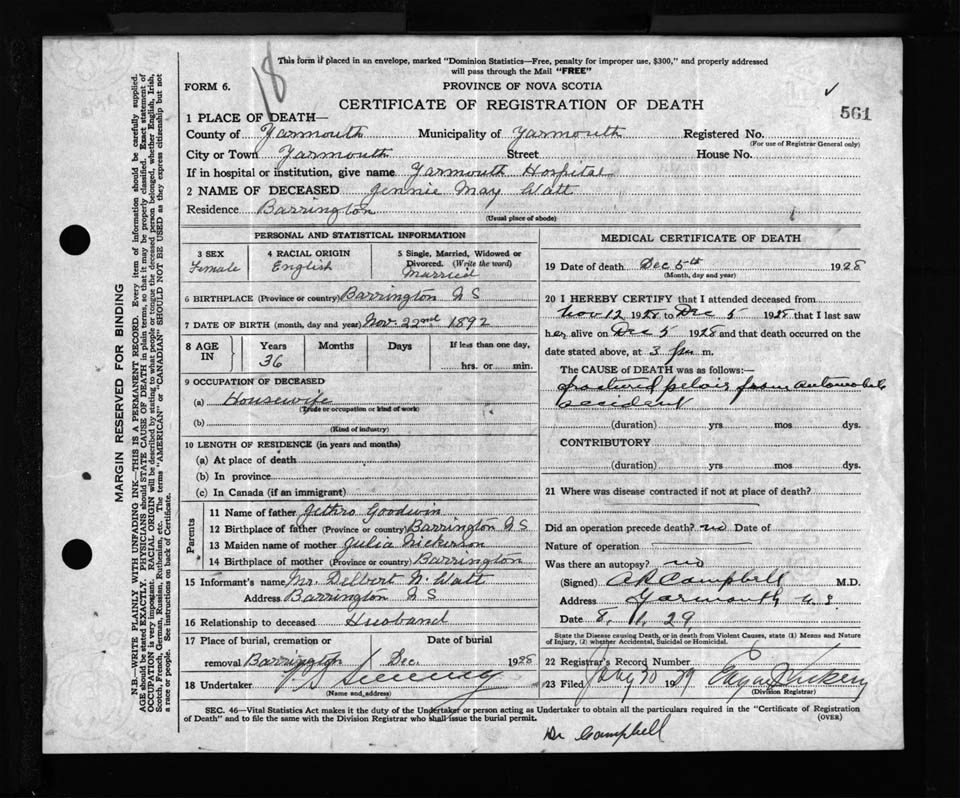 This form if placed in an envelope, marked "Dominion Statistics—Free, penalty for improper use, $300," and properly addressed
will pass through the Mail "FREE"
18
FORM 6.
PROVINCE OF NOVA SCOTIA
CERTIFICATE OF REGISTRATION OF DEATH
561
1 PLACE OF DEATH—
County of Yarmouth Municipality of Yarmouth Registered No.
(For use of Registrar General only)
City or Town Yarmouth Street House No.
If in hospital or institution, give name Yarmouth Hospital
2 NAME OF DECEASED Jennie May Watt
Residence Barrington
(Usual place of abode)
PERSONAL AND STATISTICAL INFORMATION
3 SEX
Female
4 RACIAL ORIGIN
English
5 Single, Married, Widowed or
Divorced. (Write the word)
Married
6 BIRTHPLACE (Province or country) Barrington N S
7 DATE OF BIRTH (month, day and year) Nov. 22nd 1892
8 AGE IN
Years Months Days If less than one day,
36 hrs. or min.
9 OCCUPATION OF DECEASED
(a) Housewife
(Trade or occupation or kind of work)
(b)
(Kind of industry)
10 LENGTH OF RESIDENCE (in years and months)
(a) At place of death
(b) In province
(c) In Canada (if an immigrant)
Parents
11 Name of father Jethro Goodwin
12 Birthplace of father (Province or country) Barrington N S
13 Maiden name of mother Julia Nickerson
14 Birthplace of mother (Province or country) Barrington
15 Informant's name Mr. Delbert N. Watt
Address Barrington N S
16 Relationship to deceased Husband
17 Place of burial, cremation or Date of burial
removal Barrington Dec. 1928
18 Undertaker Sweeny
(Name and address)
MEDICAL CERTIFICATE OF DEATH
19 Date of death Dec 5th 1928
(Month, day and year)
20 I HEREBY CERTIFY that I attended deceased from
Nov 12 1928 to Dec 5 1928 that I last saw
her alive on Dec 5 1928 and that death occurred on the
date stated above, at 3 p m.
The CAUSE of DEATH was as follows:—
fractured pelvis from automobile
accident
(duration) yrs mos dys.
CONTRIBUTORY
(duration) yrs mos dys.
21 Where was disease contracted if not at place of death?
Did an operation precede death? no Date of
Nature of operation
Was there an autopsy? no
(Signed) Campbell M.D.
Address Yarmouth N.S.
Date 8. 1. 29.
State the Disease causing Death, or in death from Violent Causes, state (1) Means and Nature
of Injury, (2) whether Accidental, Suicidal or Homicidal.
22 Registrar's Record Number
23 Filed 1929
(Division Registrar)
SEC. 46—Vital Statistics Act makes it the duty of the Undertaker or person acting as Undertaker to obtain all the particulars required in the "Certificate of Registration
of Death" and to file the same with the Division Registrar who shall issue the burial permit. (OVER)
Dr Campbell
MARGIN RESERVED FOR BINDING
N.B.—WRITE PLAINLY WITH UNFADING INK—THIS IS A PERMANENT RECORD. Every item of information should be carefully supplied.
AGE should be stated EXACTLY. PHYSICIANS should STATE CAUSE OF DEATH in plain terms, so that it may be properly classified. Exact statement of
OCCUPATION is very important. RACIAL ORIGIN will be described by stating to what people or tongue the deceased person belonged, whether English, Irish,
Scotch, French, German, Russian, Ruthenian, etc. The terms "AMERICAN" or "CANADIAN" SHOULD NOT BE USED as they express citizenship but not
a race or people. See instructions on back of Certificate.